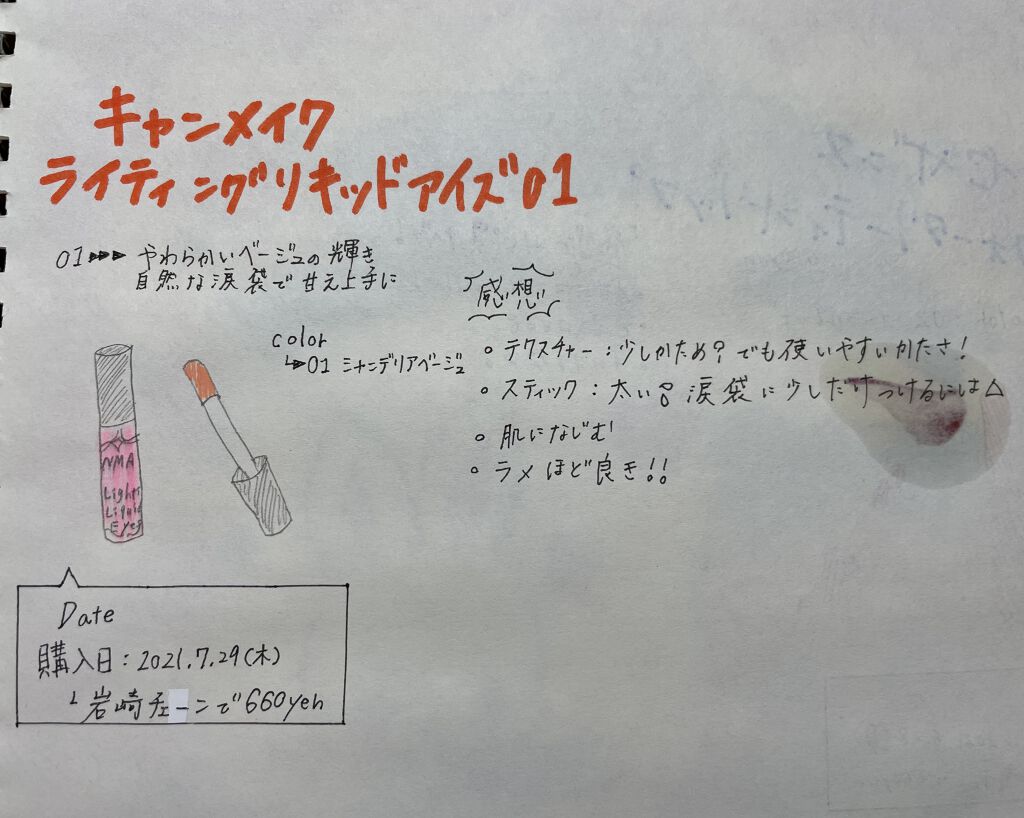 キャンメイク
ライティングリキッドアイズ01
01 やわらかいベージュの輝き
自然な涙袋で甘え上手に
感想
color
↳01 シャンデリアベージュ
。テクスチャー:少しかため?でも使いやすいかたさ!
。スティック:太い。涙袋に少しだけつけるには△
。肌になじむ
。ラメほど良き!!
NMA
Light
Liquid
Eyes
Date
購入日:2021.7.29(木)
└岩崎チェーンで660yen